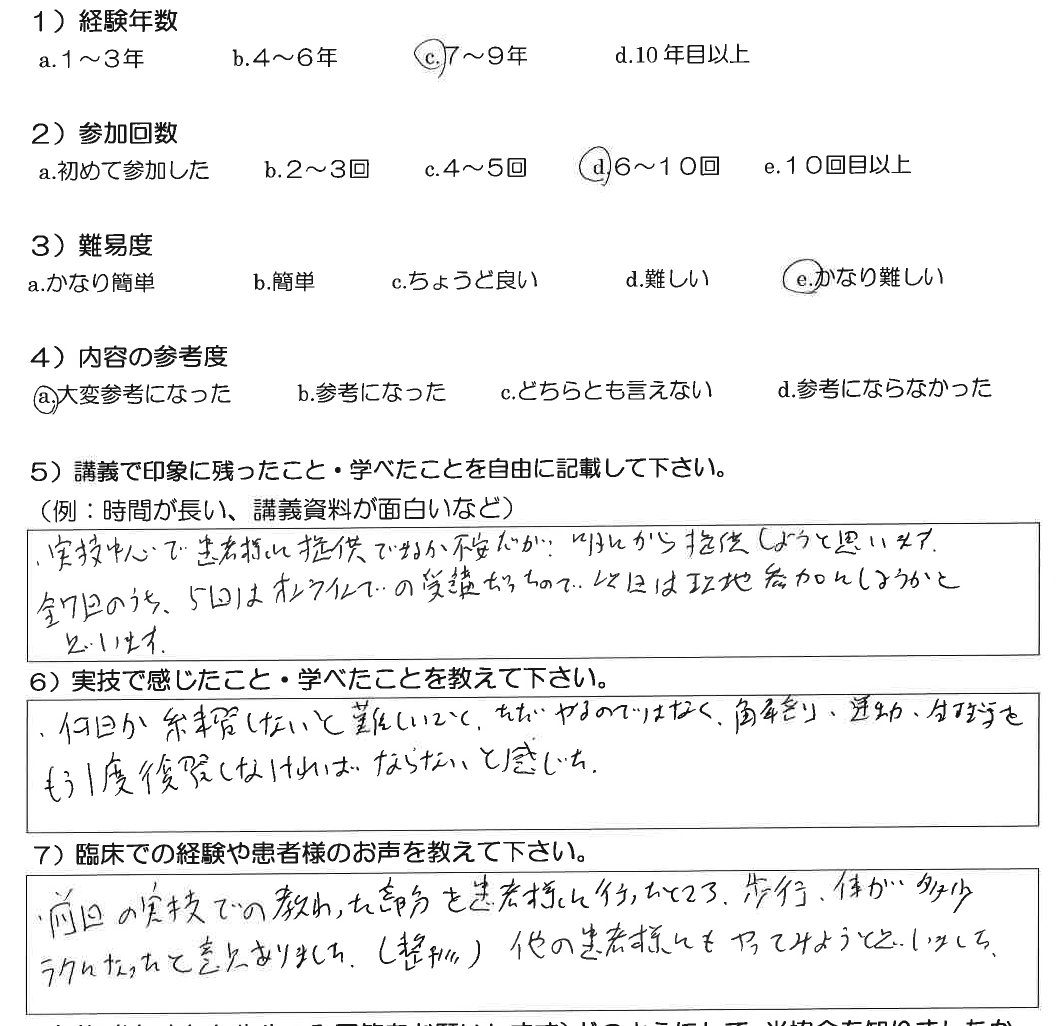 1）経験年数
a.1～3年 b.4～6年 c.7～9年 d.10年目以上
2）参加回数
a.初めて参加した b.2～3回 c.4～5回 d.6～10回 e.10回目以上
3）難易度
a.かなり簡単 b.簡単 c.ちょうど良い d.難しい e.かなり難しい
4）内容の参考度
a.大変参考になった b.参考になった c.どちらとも言えない d.参考にならなかった
5）講義で印象に残ったこと・学べたことを自由に記載して下さい。
（例：時間が長い、講義資料が面白いなど）
・実技中心で患者様に提供できるか不安だが、明日から提供しようと思います.
全7回のうち、5回はオンラインでの受講だったので、次回は現地参加にしようかと
思います.
6）実技で感じたこと・学べたことを教えて下さい。
・何回か練習しないと難しいこと、ただやるのではなく、解剖、運動、生理学を
もう1度復習しなければならないと感じた.
7）臨床での経験や患者様のお声を教えて下さい。
・前回の実技での教わった部分を患者様に行ったところ、歩行、体が多少
ラクになったと意見ありました.（整形） 他の患者様にもやってみようと思いました.